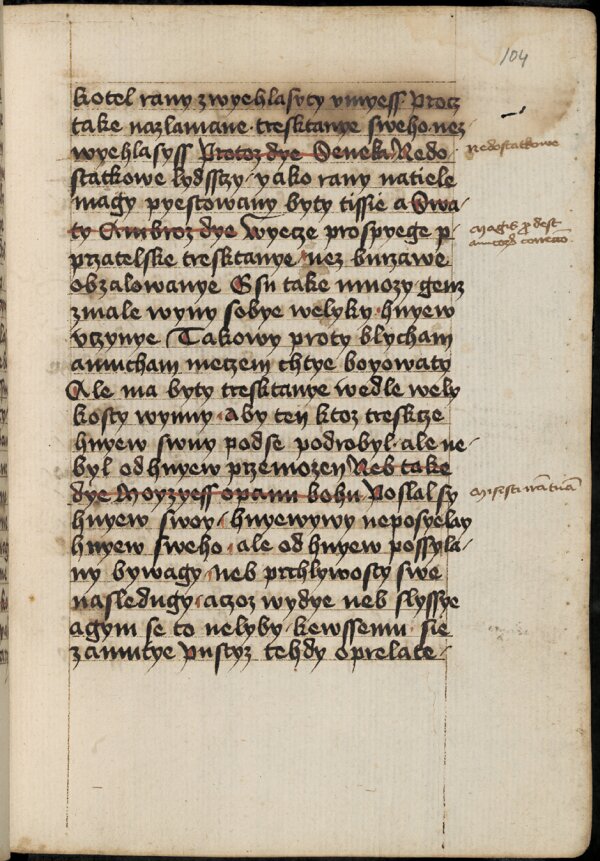 104
kotel rany zwyehlasyty vmyess Procz
take nazlamane tresktanye sweho nez
wyehlasyss Protoz dye Seneka Nedo
statkowe lydsszy yako rany natiele
magy pyestowany byty tissie a Swa
ty Ambroz dye Wyecze prospyege p
przatelske tresktanye nez burzawe
obzalowanye Gsu take mnozy genz
zmale wyny sobye welyky hnyew
vczynye Takowy proty blycham
amucham meczem chtye boyowaty
Ale ma byty tresktanye wedle wely
kosty wynny aby ten ktoz treskcze
hnyew swuy podse podrobyl ale ne
byl od hnyew przemozen Neb take
dye Moyzyess opanu bohu Poslal sy
hnyew swoy hnyewywy neposyelay
hnyew sweho ale od hnyew possyla
ny bywagy neb prchlywosty swe
nasledugy aczoz wydye neb slyssye
agym se to nelyby kewssemu sie
zamutye Pustyz tehdy oprelate
Nedostatkowe